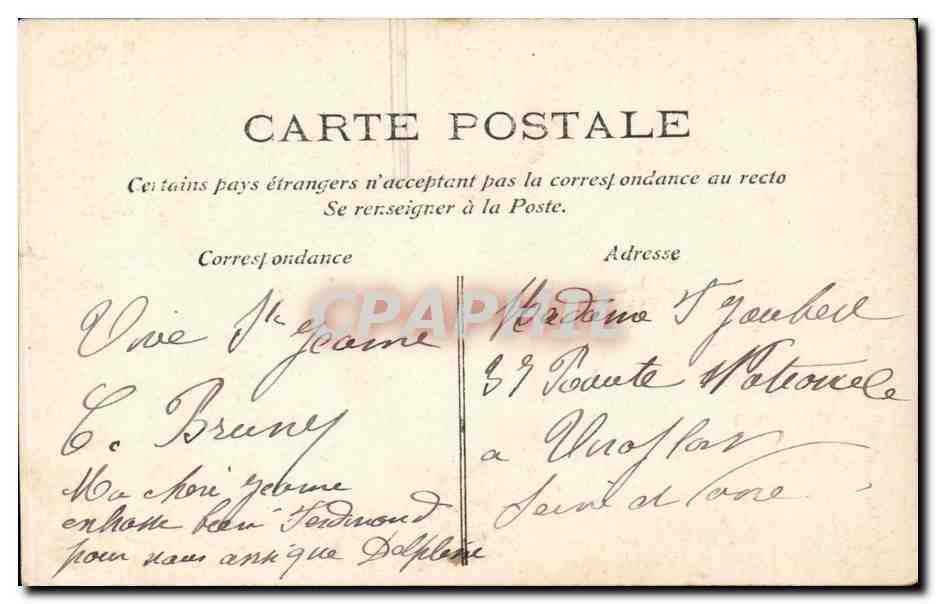 CARTE POSTALE
Certains pays étrangers n'acceptant pas la correspondance au recto
Se renseigner à la Poste.
Correspondance
Vive Ste Jeanne
C. Bruny
Ma cheri Jeanne
enbasse bien Ferdinand
pour nous ansique Delphine
Adresse
Madame T Joubert
37 Route Nationale
a Viroflay
Seine et Oise
CPAPHIL